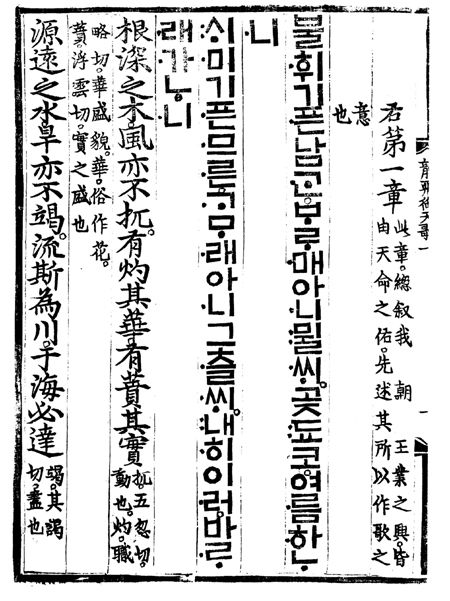 龍飛御天歌一
一
右第一章
此章。總叙我 朝 王業之興。皆
由天命之佑。先述其所以作歌之
意
也
불휘기픈남ᄀᆞᆫ。ᄇᆞᄅᆞ매아니뮐ᄊᆡ。곶됴코。여름하ᄂᆞ
니
ᄉᆡ미기픈므른。ᄀᆞᄆᆞ래아니그츨ᄊᆡ。내히이러。바ᄅᆞ
래가ᄂᆞ니
根深之木。風亦不扤。有灼其華。有蕡其實
扤。五忽切。
動也。灼。職
略切。華盛貌。華。俗作花。
蕡。浮雲切。實之盛也
源遠之水。旱亦不竭。流斯為川。于海必達
竭。其謁
切。盡也